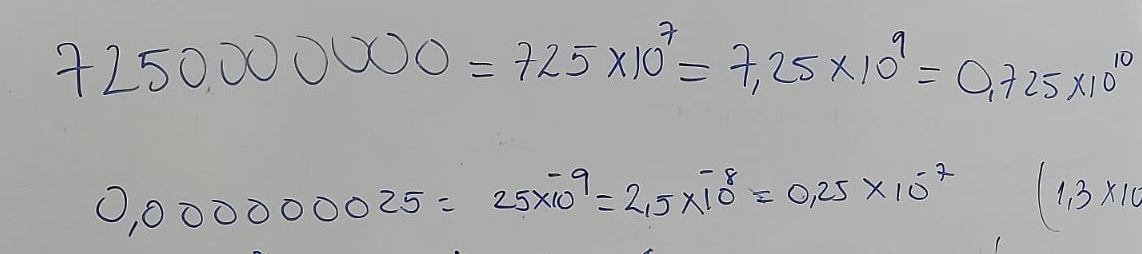 7250.000000 = 725 x 10⁷ = 7,25 x 10⁹ = 0,725 x 10¹⁰
0,000000025 = 25x10⁻⁹ = 2,5 x 10⁻⁸ = 0,25 x 10⁻⁷ (1,3 x 10